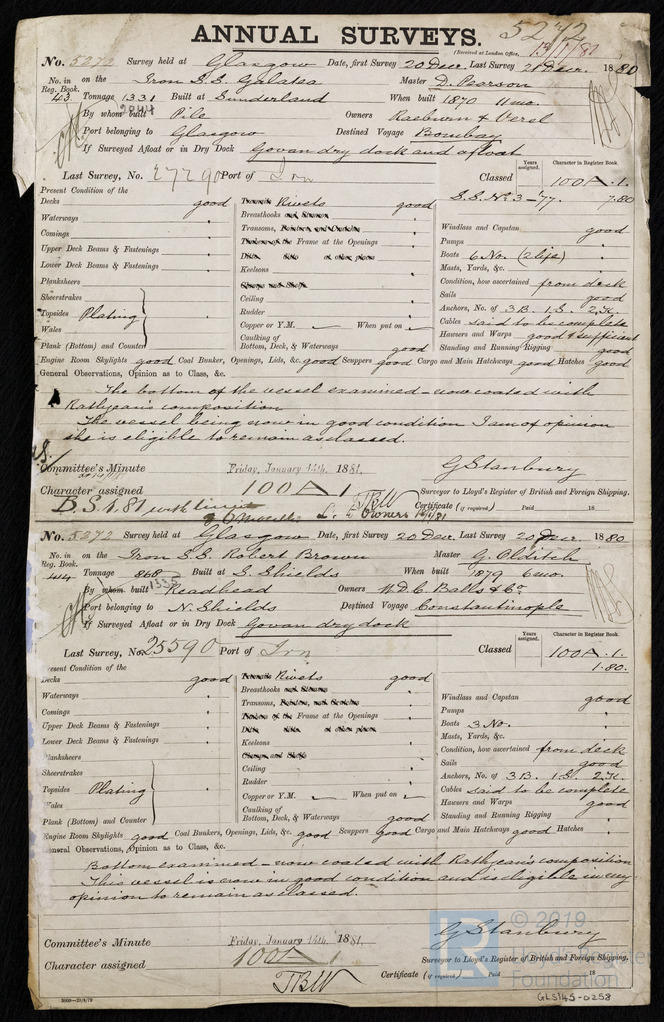 5272
ANNUAL SURVEYS.
(Received at London Office, 13/1/81
No. 5272 Survey held at Glasgow Date, first Survey 20 Decr. Last Survey 21 Decr. 1880
No. in Reg. Book. 43 on the Iron S.S. Galatea Master D. Pearson
Tonnage 1331 2044 Built at Sunderland When built 1870 11mo.
By whom built Pile Owners Raeburn & Verel
Port belonging to Glasgow Destined Voyage Bombay
If Surveyed Afloat or in Dry Dock Govan dry dock and afloat
Last Survey, No. 27290 Port of Irn Classed Years assigned. Character in Register Book. 100A.1.
S.S. No. 3-77. 7.80
Present Condition of the
Decks good Rivets good
Waterways " Breasthooks "
Comings " Transoms, "
Upper Deck Beams & Fastenings " Frame at the Openings "
Lower Deck Beams & Fastenings "
Planksheers Keelsons "
Sheerstrakes
Topsides Plating Ceiling "
Wales Rudder "
Plank (Bottom) and Counter Copper or Y.M. When put on
Caulking of Bottom, Deck, & Waterways good
Windlass and Capstan good
Pumps "
Boats 6 No. (2 life) "
Masts, Yards, &c. "
Condition, how ascertained from deck
Sails good
Anchors, No. of 3 B. 1 S. 2 K.
Cables said to be complete
Hawsers and Warps good & sufficient
Standing and Running Rigging good
Engine Room Skylights good Coal Bunker, Openings, Lids, &c. good Scuppers good Cargo and Main Hatchways good Hatches good
General Observations, Opinion as to Class, &c.
The bottom of the vessel examined - now coated with
Rathjean's composition
The vessel being now in good condition I am of opinion
she is eligible to remain as classed.
Committee's Minute Friday, January 14th, 1881. G Stanbury
Character assigned 100A1 Surveyor to Lloyd's Register of British and Foreign Shipping.
B.S. 1.81 with limit 6 months TBW Owners Certificate (if required) Paid 18
No. 5272 Survey held at Glasgow Date, first Survey 20 Decr. Last Survey 20 Decr. 1880
No. in Reg. Book. 414 on the Iron S.S. Robert Brown Master G. Olditch
Tonnage 868 1335 Built at S. Shields When built 1879 6mo.
By whom built Readhead Owners W.D.C. Balls & Co.
Port belonging to N. Shields Destined Voyage Constantinople
If Surveyed Afloat or in Dry Dock Govan dry dock
Last Survey, No. 25590 Port of Irn Classed Years assigned. Character in Register Book. 100A.1.
1.80.
Present Condition of the
Decks good Rivets good
Waterways " Breasthooks "
Comings " Transoms, "
Upper Deck Beams & Fastenings " Frame at the Openings "
Lower Deck Beams & Fastenings "
Planksheers Keelsons "
Sheerstrakes
Topsides Plating Ceiling "
Wales Rudder "
Plank (Bottom) and Counter Copper or Y.M. When put on
Caulking of Bottom, Deck, & Waterways good
Windlass and Capstan good
Pumps "
Boats 3 No. "
Masts, Yards, &c. "
Condition, how ascertained from deck
Sails good
Anchors, No. of 3 B. 1 S. 2 K.
Cables said to be complete
Hawsers and Warps good
Standing and Running Rigging "
Engine Room Skylights good Coal Bunkers, Openings, Lids, &c. good Scuppers good Cargo and Main Hatchways good Hatches "
General Observations, Opinion as to Class, &c.
Bottom examined - now coated with Rathjean's composition
This vessel is now in good condition and is eligible in my
opinion to remain as classed.
Committee's Minute Friday, January 14th, 1881. G Stanbury
Character assigned 100A1 Surveyor to Lloyd's Register of British and Foreign Shipping.
TBW Certificate (if required) Paid 18
© 2019
Lloyd's Register
Foundation
GLS145-0258